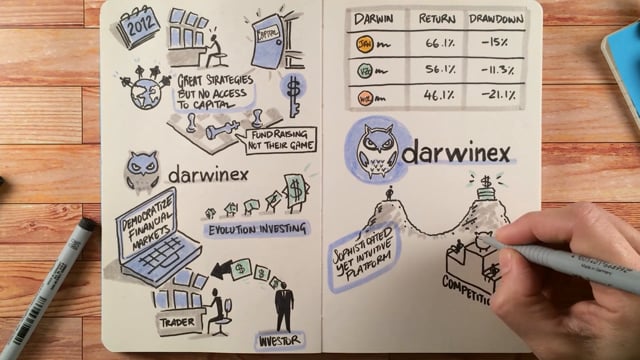 2012
CAPITAL
GREAT STRATEGIES
BUT NO ACCESS
TO CAPITAL
FUNDRAISING
NOT THEIR GAME
darwinex
DEMOCRATIZE
FINANCIAL
MARKETS
EVOLUTION INVESTING
TRADER
INVESTOR
DARWIN RETURN DRAWDOWN
66.1% -15%
56.1% -11.3%
46.1% -21.1%
darwinex
SOPHISTICATED
YET INTUITIVE
PLATFORM
COMPETITIO